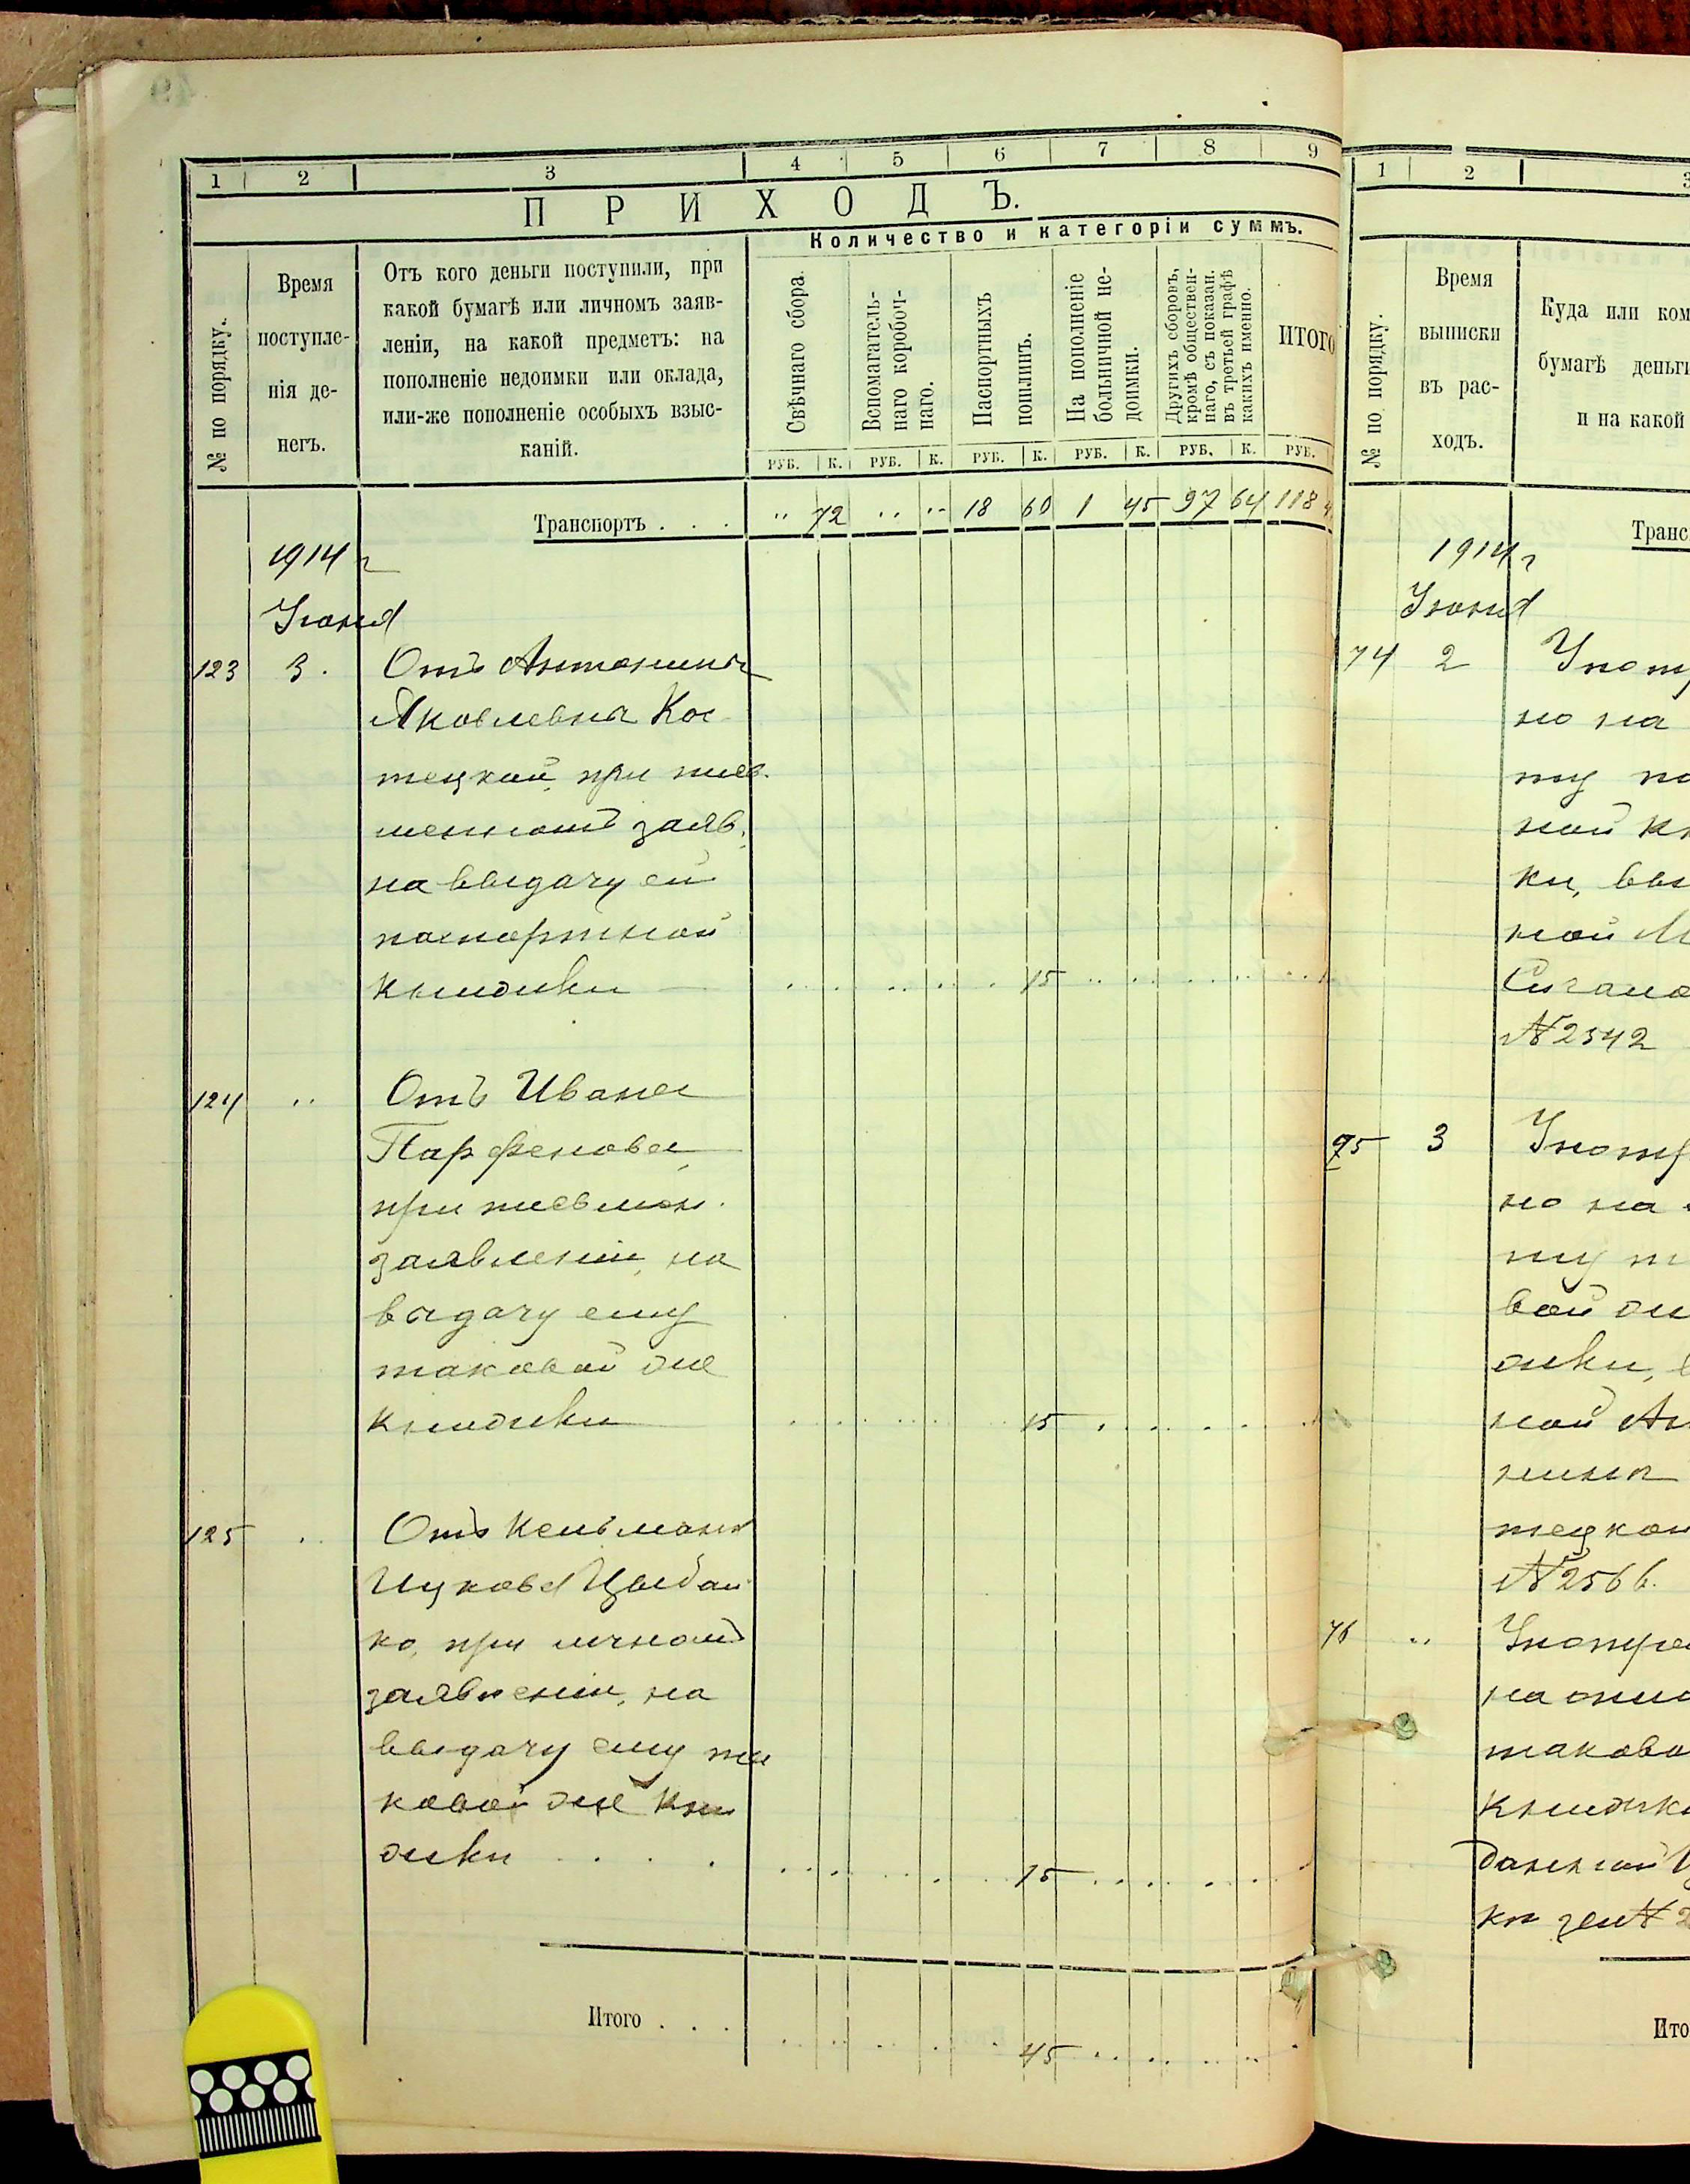 1 2 3 4 5 6 7 8 9
ПРИХОДЪ.
№ по порядку.
Время
поступле-
нія де-
негъ.
Отъ кого деньги поступили, при
какой бумагѣ или личномъ заяв-
леніи, на какой предметъ: на
пополненіе недоимки или оклада,
или-же пополненіе особыхъ взыс-
каній.
Количество и категоріи суммъ.
Свѣчнаго сбора.
Вспомагатель-
наго коробоч-
наго.
Паспортныхъ
пошлинъ.
На пополненіе
больничной не-
доимки.
Другихъ сборовъ,
кромѣ обществен-
наго, съ показан.
въ третьей графѣ
какихъ именно.
ИТОГО
РУБ. К. РУБ. К. РУБ. К. РУБ. К. РУБ. К. РУБ.
Транспортъ . . . „ 72 „ „ 18 60 1 45 97 64 118
1914 г
Іюня
123 3. Отъ Антонины
Яковлевна Кос
тецкой, при пись
менномъ заяв.
на выдачу ей
паспортной
книжки 15
124 „ Отъ Ивана
Парфенова,
при письмен.
заявленіи, на
выдачу ему
таковой же
книжки 15
125 „ Отъ Кельмана
Ицкова Цыбай
ко, при личномъ
заявленіи, на
выдачу ему та
ковой же кни
жки . . . . 15
Итого . . . 45
1 2 3
№ по порядку.
Время
выписки
въ рас-
ходъ.
Куда или ком
бумагѣ деньги
и на какой
Транс
1914 г
Іюня
74 2 Упот
но на
ту па
ной кн
ки, вы
ной М
№ 2542
75 3 Упот
но на
ту т
вой же
жки, в
ной Ан
нина
тецкой
№ 2566.
76 „ Употре
таково
книжки
данной
№ 2
Ито